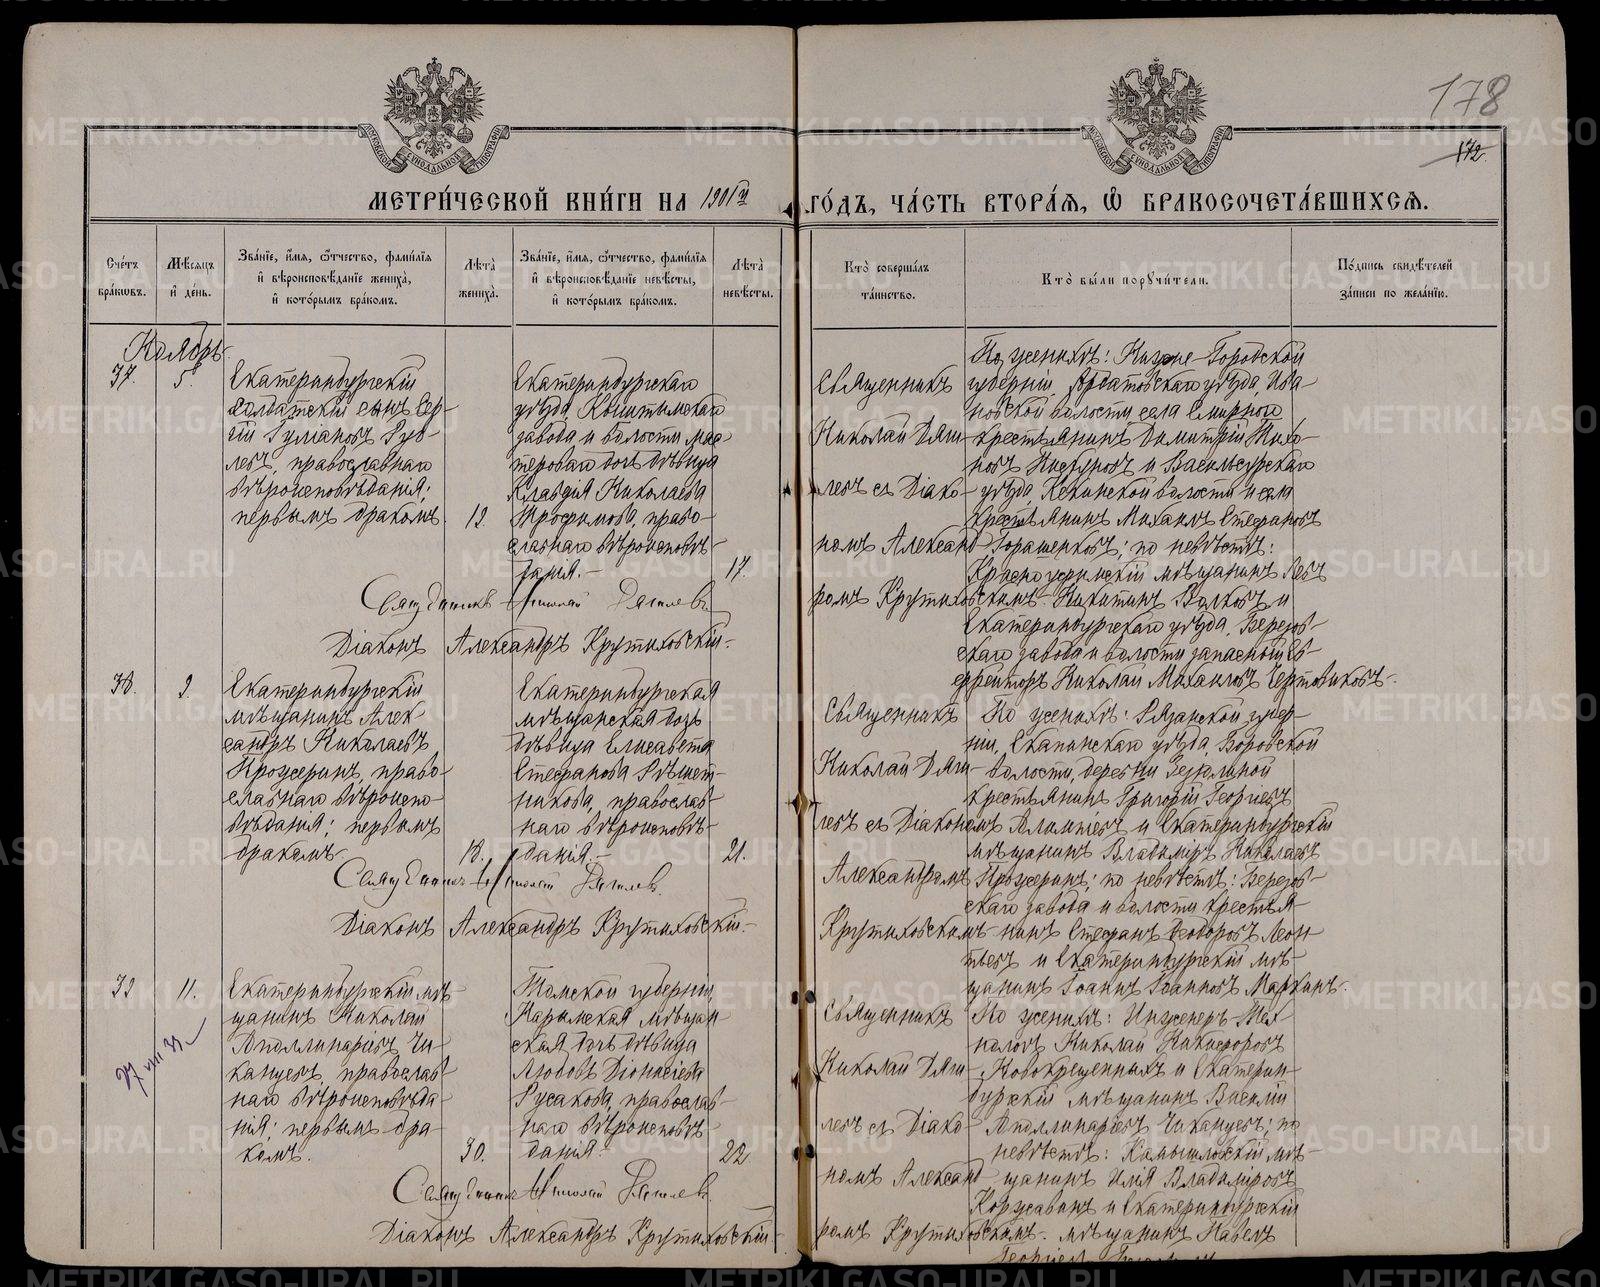 178
172.
МЕТРИ́ЧЕСКОЙ КНИ́ГИ НА 1901й ГО́ДЪ, ЧА́СТЬ ВТОРА́Я, Ѡ҆ БРАКОСОЧЕТА́ВШИХСЯ.
Сче́тъ бра́ковъ.
Мѣ́сяцъ и҆ де́нь.
Зва́нїе, и҆́мя, ѻ҆́тчество, фами́лїя и҆ вѣроисповѣ́данїе жениха̀, и҆ кото́рымъ бра́комъ.
Лѣ́та̀ жениха̀.
Зва́нїе, и҆́мя, ѻ҆́тчество, фами́лїя и҆ вѣроисповѣ́данїе невѣ́сты, и҆ кото́рымъ бра́комъ.
Лѣ́та̀ невѣ́сты.
Кто̀ соверша́лъ та́инство.
Кто̀ бы́ли порꙋчи́тели.
По́дпись свидѣ́телей за́писи по жела́нїю.
Ноябрь
37.
5.
Екатеринбургскій
солдатскій сынъ Сер-
гій Гуліановъ Руб-
левъ, православнаго
вѣроисповѣданія;
первымъ бракомъ.
Екатеринбургскаго
уѣзда, Кыштымскаго
завода и волости мас
тероваго дочь дѣвица
Клавдія Николаева
Трофимова, право-
славнаго вѣроисповѣ-
данія.-
17.
Священникъ
Николай Дяги-
левъ съ Діако-
номъ Александ
ромъ Крутиховскимъ.
По женихѣ: Ниже-Городской
губерніи, Ардатовскаго уѣзда, Ива-
новской волости, села Смирнова
крестьянинъ Димитрій Тихо-
новъ и Васильсурскаго
уѣзда, волости и села
крестьянинъ Михаилъ Стефановъ
Горашенковъ; по невѣстѣ:
Красноуфимскій мѣщанинъ
Никитинъ Волковъ и
Екатеринбургскаго уѣзда, Березов-
скаго завода и волости запасный еф-
рейторъ Николай Михаиловъ Чертовиковъ.
Священникъ Николай Дягилевъ
Діаконъ Александръ Крутиховскій.
38.
9.
Екатеринбургскій
мѣщанинъ Алек-
сандръ Николаевъ
Прожеринъ, право-
славнаго вѣроиспо-
вѣданія; первымъ
бракомъ.
18.
Екатеринбургская
мѣщанская дочь
дѣвица Елисавета
Стефанова Рѣшет-
никова, православ-
наго вѣроисповѣ-
данія.-
21.
Священникъ
Николай Дяги-
левъ съ Діакономъ
Александромъ
Крутиховскимъ
По женихѣ: Рязанской губер-
ніи, Скапинскаго уѣзда, Боровской
волости, деревни
крестьянинъ Григорій Георгіевъ
Алимпіевъ и Екатеринбургскій
мѣщанинъ Владиміръ Николаевъ
Прожеринъ; по невѣстѣ: Березов-
скаго завода и волости крестья-
нинъ Стефанъ Ѳеодоровъ Леон-
тьевъ и Екатеринбургскій мѣ-
щанинъ Іоаннъ Іоанновъ Маркинъ.
Священникъ Николай Дягилевъ.
Діаконъ Александръ Крутиховскій.
39
11.
Екатеринбургскій мѣ-
щанинъ Николай
Аполлинаріевъ Чи-
канцевъ, православ-
наго вѣроисповѣда-
нія; первымъ бра-
комъ.
30.
Томской губерніи,
Нарымская мѣщан
ская дочь дѣвица
Любовь Діонисіева
Русакова, православ-
наго вѣроисповѣ-
данія.-
22
Священникъ
Николай Дяги-
левъ съ Діако-
номъ Александ
ромъ Крутиховскимъ.
По женихѣ: Инженеръ-Тех
нологъ Николай Никифоровъ
Новокрещенныхъ и Екатерин-
бургскій мѣщанинъ Василій
Аполлинаріевъ Чиканцевъ; по
невѣстѣ: Камышловскій мѣ-
щанинъ Илія Владиміровъ
Коржавинъ и Екатеринбургскій
мѣщанинъ Павелъ
Священникъ Николай Дягилевъ
Діаконъ Александръ Крутиховскій